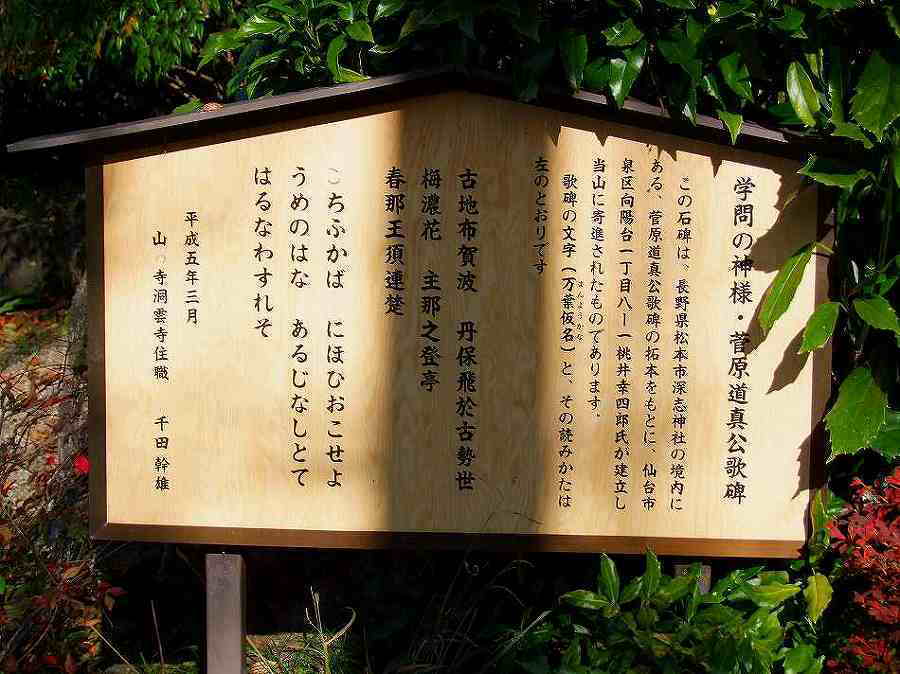 学問の神様・菅原道真公歌碑
この石碑は、長野県松本市深志神社の境内に
ある、菅原道真公歌碑の拓本をもとに、仙台市
泉区向陽台一丁目八ー一桃井幸四郎氏が建立し
当山に寄進されたものであります。
歌碑の文字(万葉仮名)と、その読みかたは
まんようかな
左のとおりです
古地布賀波 丹保飛於古勢世
梅濃花 主那之登亭
春那王須連楚
こちふかば にほひおこせよ
うめのはな あるじなしとて
はるなわすれそ
平成五年三月
山の寺洞雲寺住職 千田幹雄